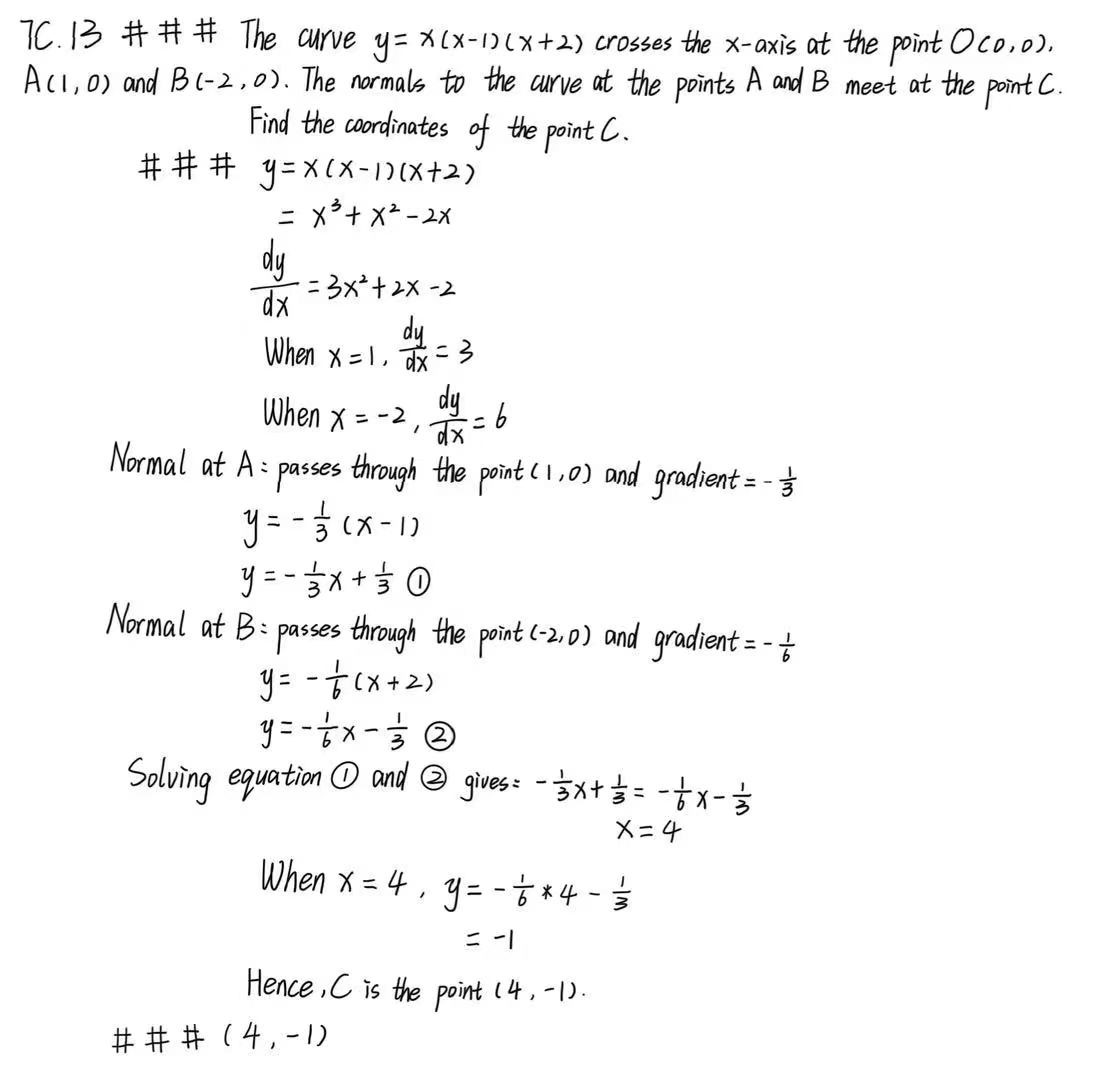 7C.13 ### The curve y = x(x-1)(x+2) crosses the x-axis at the point O(0,0),
A(1,0) and B(-2,0). The normals to the curve at the points A and B meet at the point C.
Find the coordinates of the point C.
### y = x(x-1)(x+2)
= x³ + x² - 2x
dy/dx = 3x² + 2x - 2
When x = 1, dy/dx = 3
When x = -2, dy/dx = 6
Normal at A: passes through the point (1,0) and gradient = -1/3
y = -1/3 (x-1)
y = -1/3 x + 1/3 ①
Normal at B: passes through the point (-2,0) and gradient = -1/6
y = -1/6 (x+2)
y = -1/6 x - 1/3 ②
Solving equation ① and ② gives: -1/3 x + 1/3 = -1/6 x - 1/3
x = 4
When x = 4, y = -1/6 * 4 - 1/3
= -1
Hence, C is the point (4,-1).
### (4,-1)